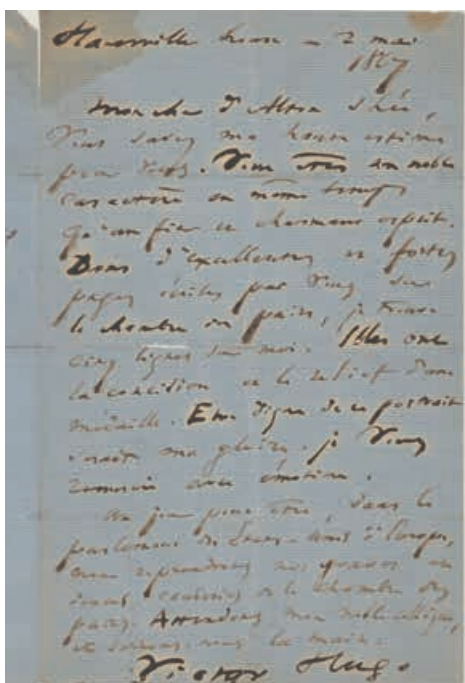 Hauteville house – 2 mai
1867
Mon cher d'Alton Shée,
Vous savez ma haute estime
pour vous. Vous êtes un noble
caractère en même temps
qu'un fier et charmant esprit.
Dans d'excellentes et fortes
pages écrites par vous sur
la chambre des pairs, je trouve
cinq lignes sur moi. Elles ont
la concision et le relief d'une
médaille. Etre digne de ce portrait
serait ma gloire. je vous
remercie avec émotion.
Un jour peut-être, dans le
parlement des Etats-Unis d'Europe,
nous reprendrons nos graves et
douces causeries de la chambre des
pairs. Attendons, mon noble collègue,
et serrons-nous la main.
Victor Hugo